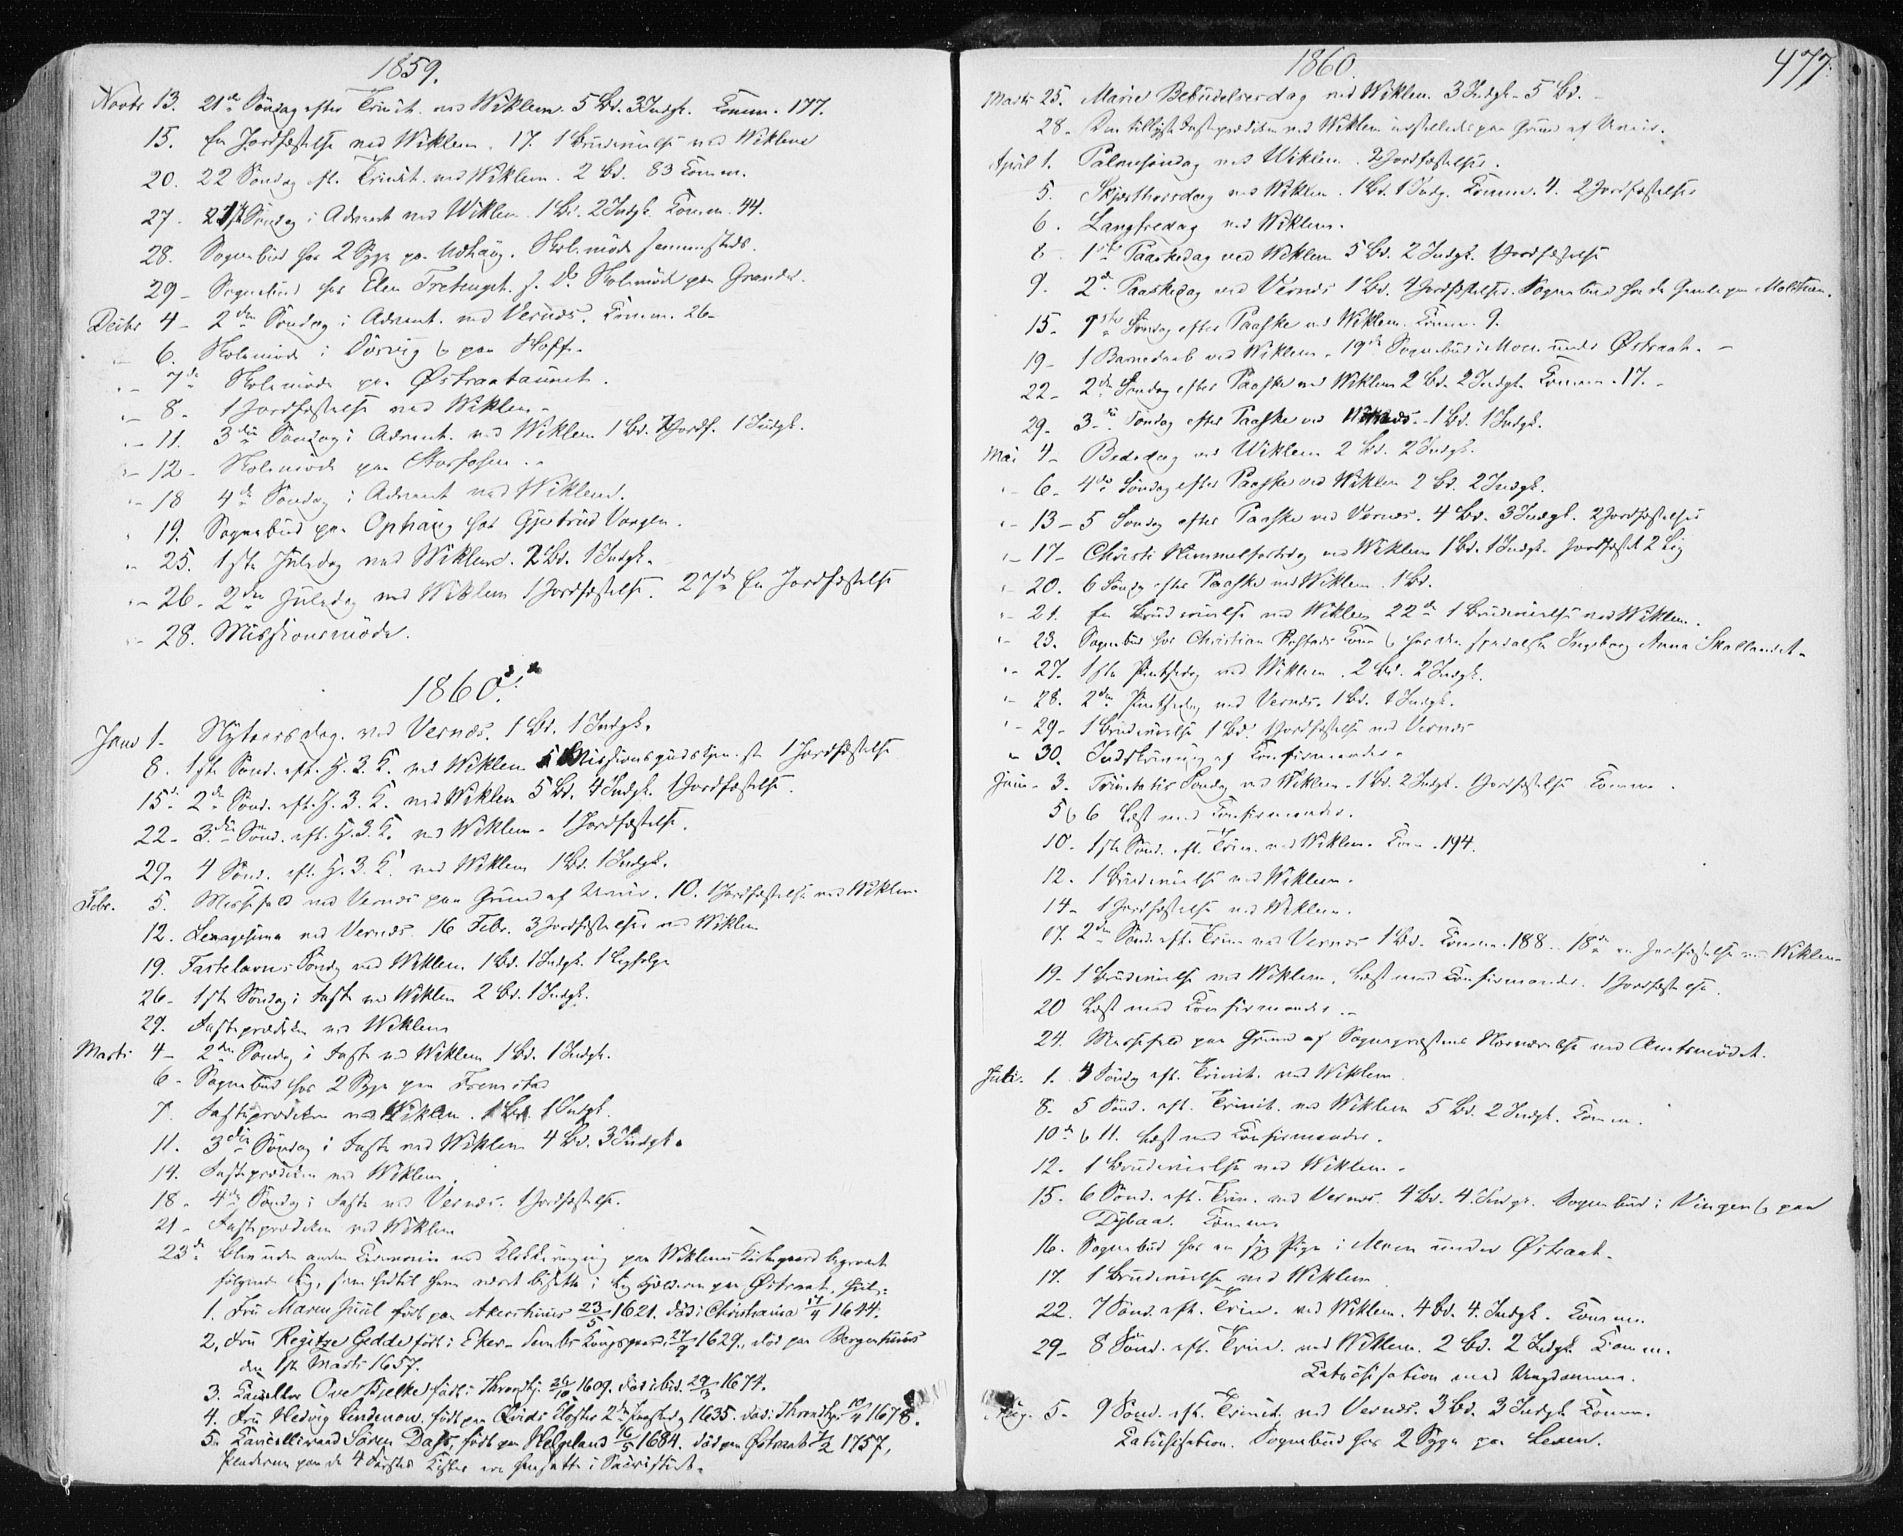 1859.
Novbr 13. 21de Søndag efter Trinit. ved Wiklem. 5 Bd. 3 Indgk. Comm. 177.
15. En Jordfæstelse ved Wiklem. 17. 1 Brudevielse ved Wiklem
20. 22 Søndag eft. Trinit. ved Wiklem. 2 Bd. 83 Comm.
27. 1ste Søndag i Advent ved Wiklem. 1 Bd. 2 Indgk. Comm. 44.
28. Sognebud hos 2 Syge paa Udhaug. Skolemøde sammesteds.
29 - Sognebud hos Elen Skolemøde paa Grande.
Decbr 4 - 2den Søndag i Advent. ved Vernæs. Comm. 26 -
6. Skolemøde i Dørvig & paa Hoff.
7de Skolemøde paa Østraataunet.
8 - 1 Jordfæstelse ved Wiklem -
11. 3die Søndag i Advent. ved Wiklem 1 Bd. Jordf. 1 Indgk.
12 - Skolemøde paa Storfosen.
18 4de Søndag i Advent ved Wiklem.
19. Sognebud paa Ophaug hos Gjertrud Vongen.
25. 1ste Juledag ved Wiklem. 2 Bd. 1 Indgk.
26 - 2den Juledag ved Wiklem 1 Jordfæstelse. 27de En Jordfæstelse
28. Missionsmøde.
1860.
Janu 1 - Nytaarsdag. ved Vernæs. 1 Bd. 1 Indgk.
8. 1ste Sønd. eft. H. 3. K. ved Wiklem 1 Jordfæstelse
15de 2de Sønd. eft. H. 3. K. ved Wiklem 5 Bd. 4 Indgk. 1 Jordfæstelse.
22 - 3die Sønd. eft. H. 3. K. ved Wiklem - 1 Jordfæstelse.
29 - 4 Sønd. eft. H. 3. K. ved Wiklem 1 Bd. 1 Indgk.
Febr. 5. Messefald ved Vernæs paa Grund af Uveir. 10. 1 Jordfæstelse ved Wiklem
12. Sexagesima ved Vernæs. 16 Febr. 3 Jordfæstelser ved Wiklem
19. Fastelavns Søndg ved Wiklem 1 Bd. 1 Indgk.
26 - 1ste Søndag i Faste ved Wiklem 2 Bd. 1 Indgk.
29. Fasteprædiken ved Wiklem
Marti 4 - 2den Søndag i Faste ved Wiklem 1 Bd. 1 Indgk.
6 - Sognebud hos 2 Syge paa Fremstad
7. Fasteprædiken ved Wiklem. 1 Bd. 1 Indgk.
11. 3die Søndag i Faste ved Wiklem 4 Bd. 3 Indgk.
14. Fasteprædiken ved Wiklem.
18 - 4de Søndag i Faste ved Vernæs. 1 Jordfæstelse.
21 - Fasteprædiken ved Wiklem
23de Blev uden anden Ceremonie end Klokkeringning paa Wiklems Kirkegaard begravet
følgende Lig, som hidtil have været bisatte i Ligkjelderen paa Østraat,
1. Fru Maren Juul født paa Akershuus 23/5 1621. død i Christiania 17/4 1644.
2, Fru Regitze Gedde født i Eker - 1629., død paa Bergenhuus
den 1ste Marts 1657.
3. Cantzller Ove Bjelke født i Throndhj. 1609. død ibid. 29/3 1674.
4. Fru Hedvig Lindenow, født paa Qvids Kloster 2den Paaskedg 1635. død i Throndhj. 10/4 1678.
5. Cancelliraad Søren Dass, født paa Helgeland 16/5 1684. død paa Østraat 1757,
Pladerne paa de 4 første Kister ere hensatte i Sacristiet.
1860.
477.
Marti 25. Mariæ Bebudelsesdag ved Wiklem. 3 Indgk - 5 Bd.
28 - Den tillyste Fasteprædiken ved Wiklem indstilledes paa Grund af Uveir.
April 1. Palmesøndag ved Wiklem. 2 Jordfæstelser.
5. Skjærthorsdag ved Wiklem. 1 Bd. 1 Indg. Comm. 4. 2 Jordfæstelser
6. Langfredag ved Wiklem.
8 - 1ste Paaskedag ved Wiklem 5 Bd. 2 Indgk. 1 Jordfæstelse
9. 2de Paaskedag ved Vernæs 1 Bd. Jordfæstelser. Sognebud hos
15 - 1ste Søndag efter Paaske ved Wiklem. Comm. 9.
19 - 1 Barnedaab ved Wiklem. 19de Sognebud i Moen under Østraat. -
22 - 2den Søndag efter Paaske ved Wiklem 2 Bd. 2 Indgk. Comm. 17. -
29 - 3die Søndag efter Paaske ved 1 Bd. 1 Indgk.
Mai 4 - Bededag ved Wiklem 2 Bd. 2 Indgk.
6 - 4de Søndag efter Paaske ved Wiklem 2 Bd. 2 Indgk.
13 - 5 Søndag efter Paaske ved Vernæs. 4 Bd. 3 Indgk. 2 Jordfæstelser
17 - Christi Himmelfartsdg ved Wiklem 1 Bd. 1 Indgk. Jordfæstet 2 Lig
20. 6 Søndg efter Paaske ved Wiklem. 1 Bd.
21. En Brudevielse ved Wiklem 22de 1 Brudevielse ved Wiklem.
23. Sognebud hos Christian Kone & hos den spedalske Ingeborg Anna
27. 1ste Pintsedag ved Wiklem. 2 Bd. 2 Indgk.
28. 2den Pintsedag ved Vernæs. 1 Bd. 1 Indgk.
29 - 1 Brudevielse 1 Bd. 1 Jordfæstelse ved Vernæs
30. Indskrivning af Confirmander -
Juni - 3. Trinitatis Søndag ved Wiklem - 1 Bd. 2 Indgk. 1 Jordfæstelse Comm.
5 & 6 Læst med Confirmander.
10 - 1ste Sønd. eft. Trin. ved Wiklem. Com. 194.
12. 1 Brudevielse ved Wiklem.
14 - 1 Jordfæstelse ved Wiklem.
17. 2den Sønd. eft. Trin. ved Vernæs 1 Bd. Comm. 188. 18de en Jordfæstelse ved Wiklem
19 - 1 Brudevielse ved Wiklem. Læst med Confirmander. 1 Jordfæstelse.
20 Læst med Confirmander -
24. Messefald paa Grund af Sognepræstens Nærværelse ved Amtsmødet.
Juli. 1. 4 Søndg eft. Trinit. ved Wiklem
8 - 5 Sønd. eft. Trinit. ved Wiklem 5 Bd. 2 Indgk. Comm.
10de & 11. Læst med Confirmander.
12. 1 Brudevielse ved Wiklem -
15. 6 Sønd. eft. Trin. ved Vernæs. 4 Bd. 4 Indgk. Sognebud i Vingen & paa
Dybaa. Comm.
16. Sognebud hos en syg Pige i Moen under Østraat -
17. 1 Brudevielse ved Wiklem
22. 7 Sønd. eft. Trin. ved Wiklem. 4 Bd. 4. Indgk. Comm.
29 - 8 Sønd. eft. Trin. ved Wiklem. 2 Bd. 2 Indgk. Comm.
Catechisation med Ungdommen.
Aug. 5 - 9 Sønd. eft. Trinit. ved Vernæs. 3 Bd. 3 Indgk. Comm.
Catechisation. Sognebud hos 2 Syge paa